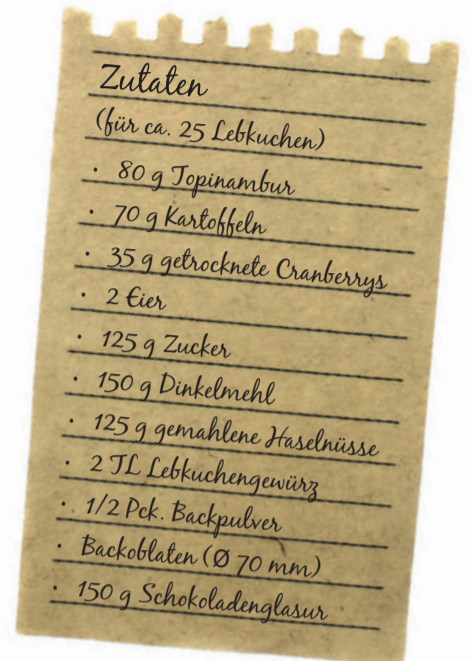 Zutaten
(für ca. 25 Lebkuchen)
• 80 g Topinambur
• 70 g Kartoffeln
• 35 g getrocknete Cranberrys
• 2 Eier
• 125 g Zucker
• 150 g Dinkelmehl
• 125 g gemahlene Haselnüsse
• 2 TL Lebkuchengewürz
• 1/2 Pck. Backpulver
• Backoblaten (Ø 70 mm)
• 150 g Schokoladenglasur